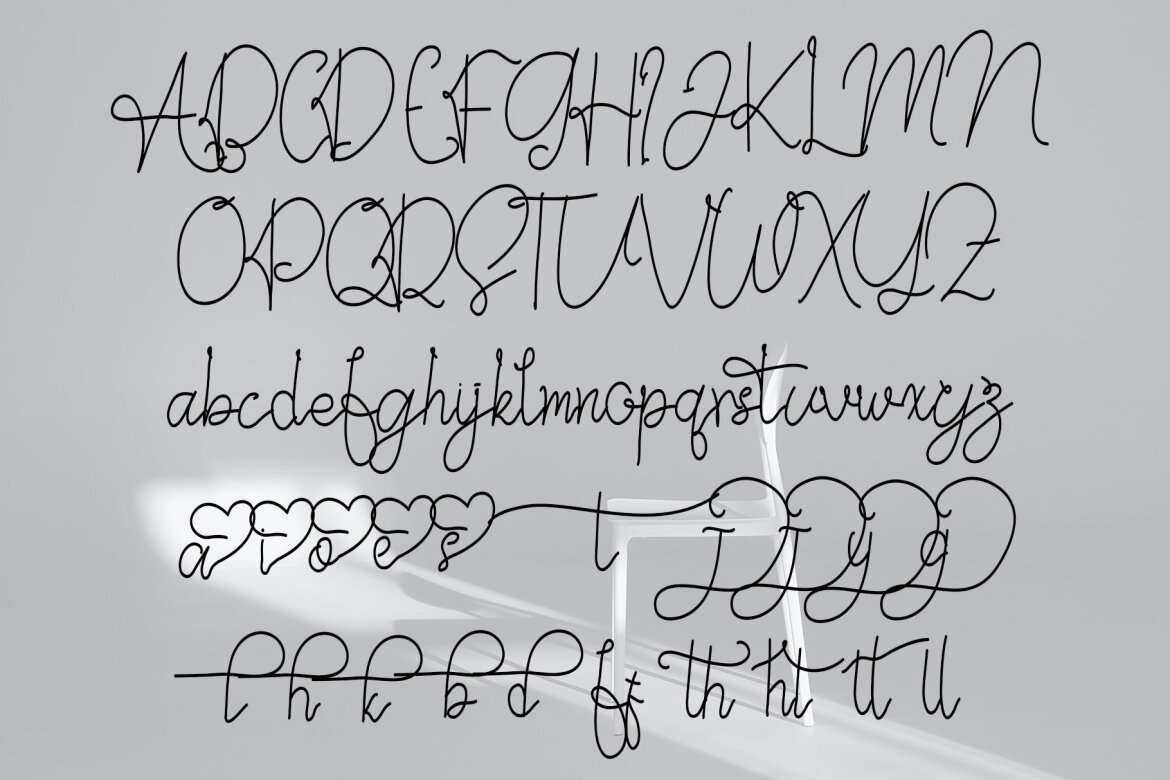 ABCDEFGHIJKLMN
OPQRSTUVWXYZ
abcdefghijklmnopqrstuvwxyz
a i o e s t J J y g
l h k b d ff th ht tt ll